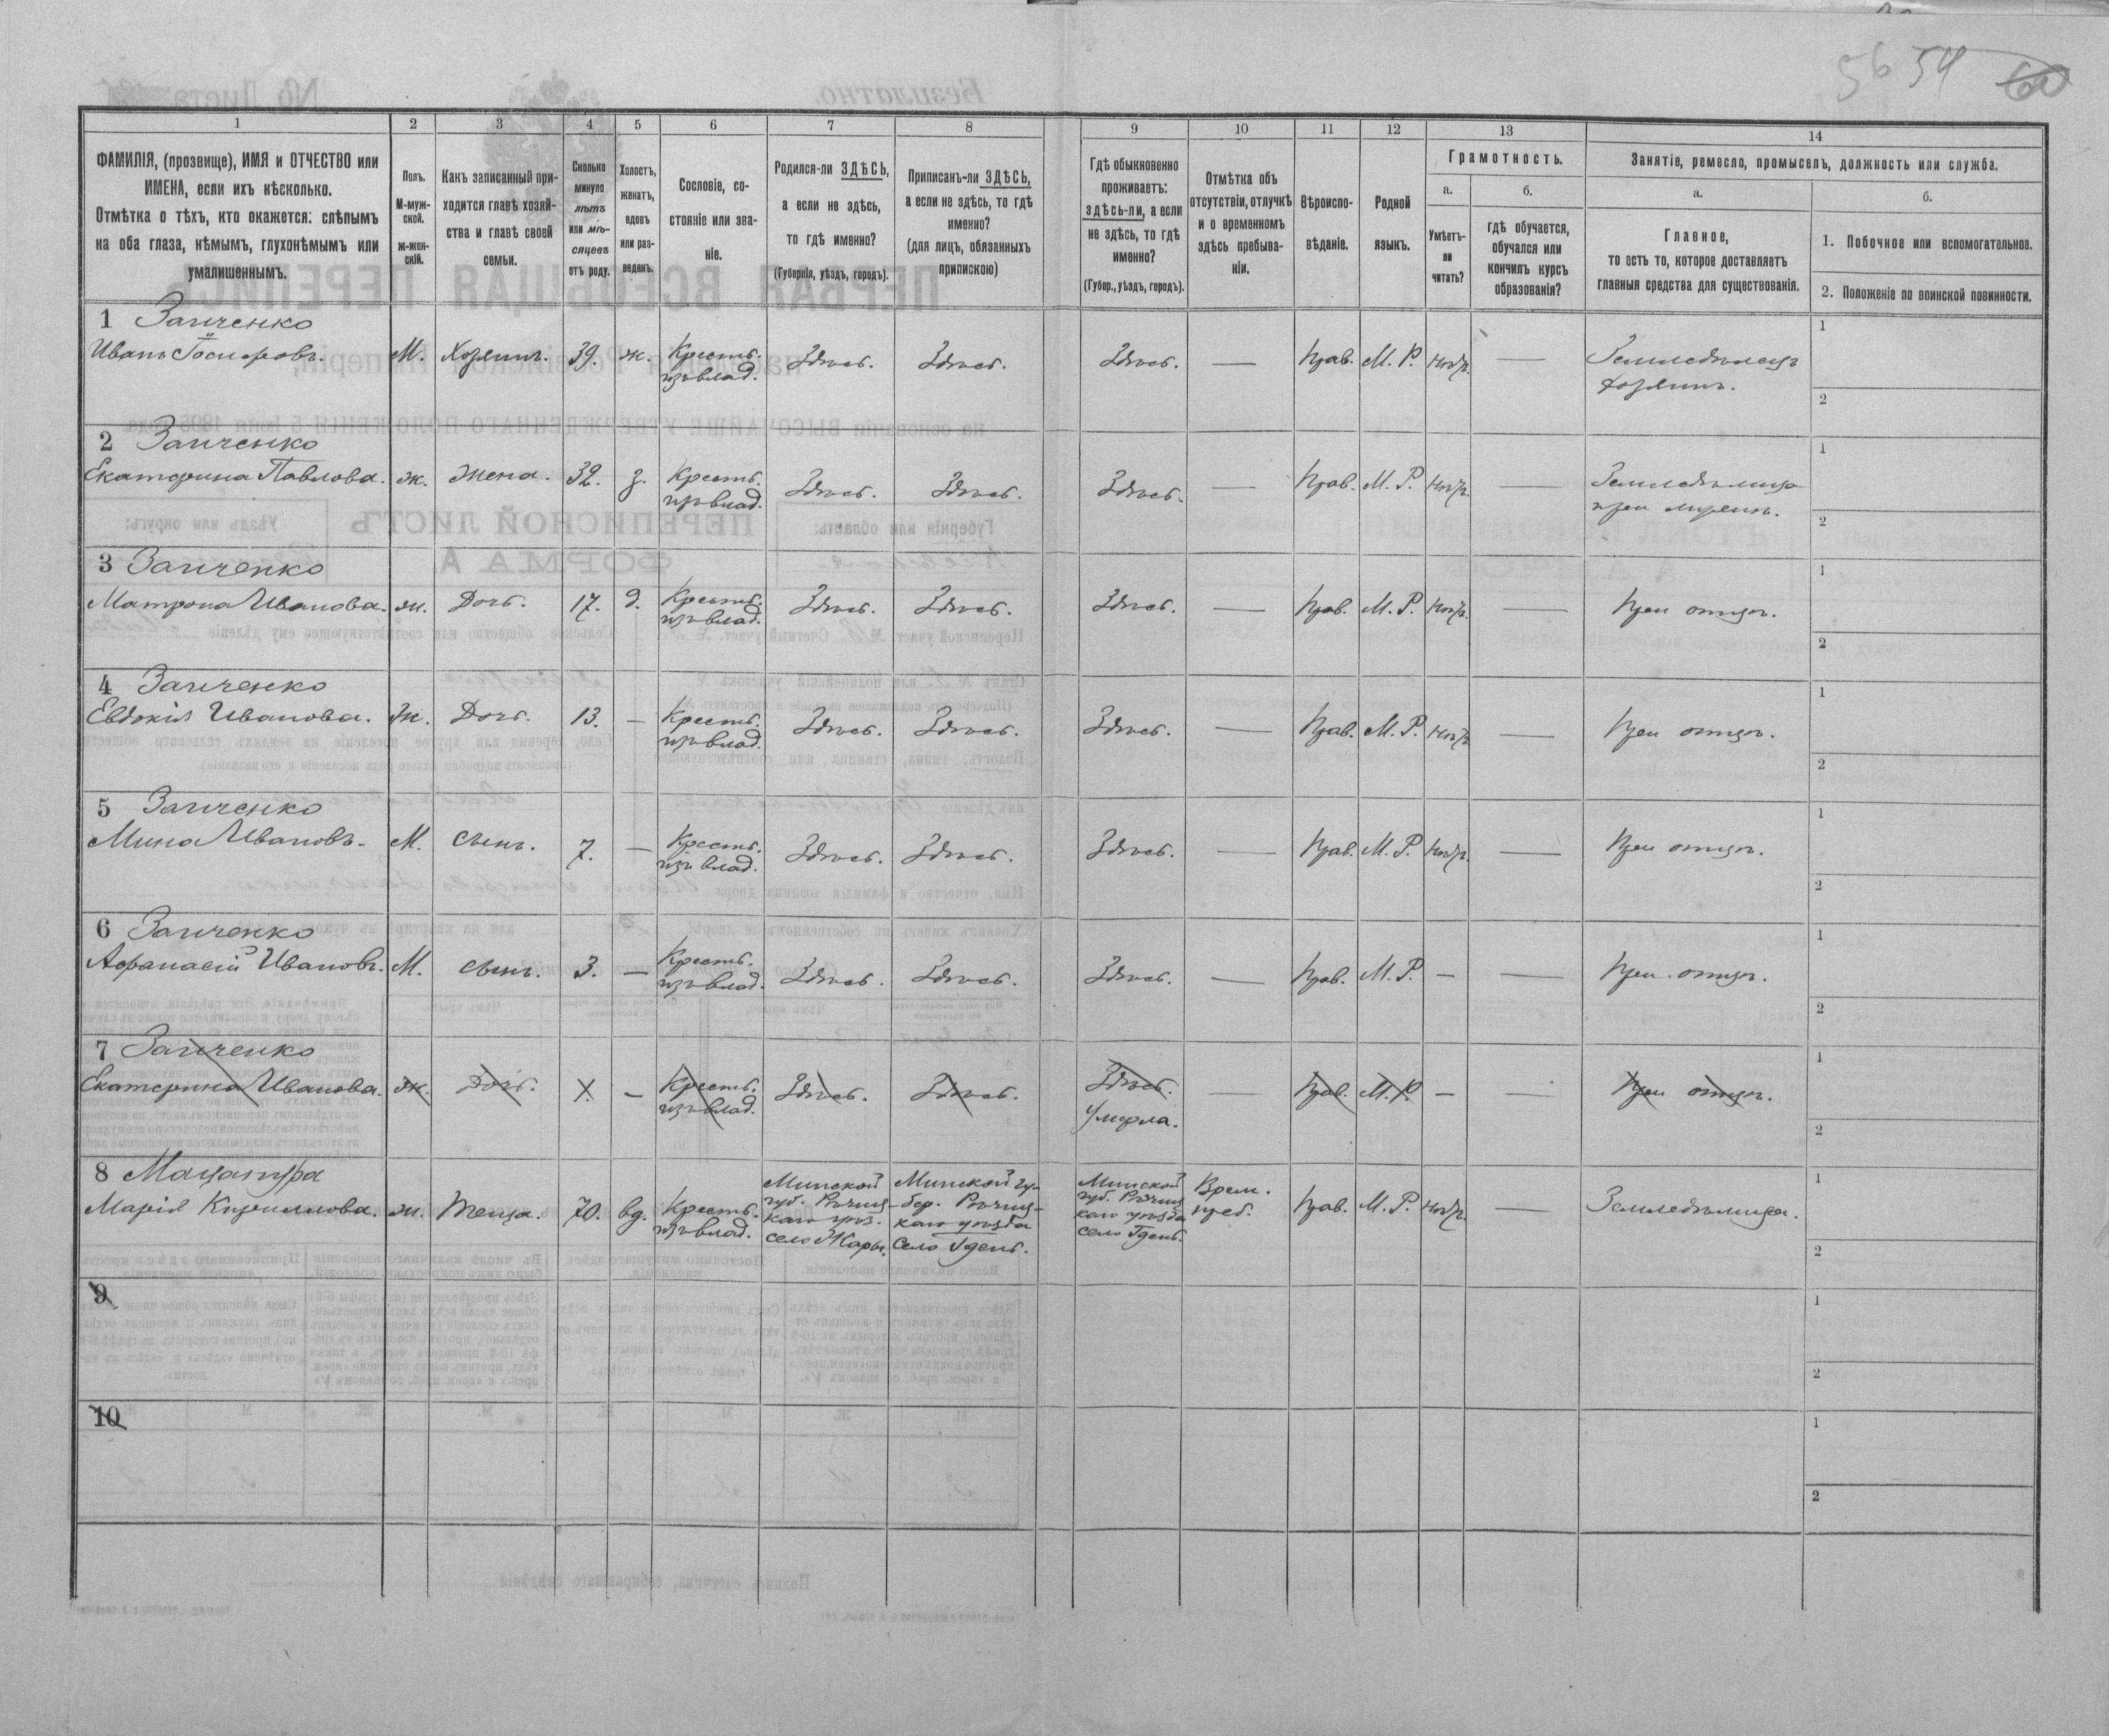 56 54 60
1
2
3
4
5
6
7
8
9
10
11
12
13
14
ФАМИЛІЯ, (прозвище), ИМЯ и ОТЧЕСТВО или
ИМЕНА, если ихъ нѣсколько.
Отмѣтка о тѣхъ, кто окажется: слѣпымъ
на оба глаза, нѣмымъ, глухонѣмымъ или
умалишеннымъ.
Полъ.
М-муж-
ской.
ж-жен-
скій.
Какъ записанный при-
ходится главѣ хозяй-
ства и главѣ своей
семьи.
Сколько
минуло
лѣтъ
или мѣ-
сяцевъ
отъ роду.
Холостъ,
женатъ,
вдовъ
или раз-
веденъ.
Сословіе, со-
стояніе или зва-
ніе.
Родился-ли ЗДѢСЬ,
а если не здѣсь,
то гдѣ именно?
(Губернія, уѣздъ, городъ).
Приписанъ-ли ЗДѢСЬ,
а если не здѣсь, то гдѣ
именно?
(для лицъ, обязанныхъ
припискою)
Гдѣ обыкновенно
проживаетъ:
здѣсь-ли, а если
не здѣсь, то гдѣ
именно?
(Губер., уѣздъ, городъ).
Отмѣтка объ
отсутствіи, отлучкѣ
и о временномъ
здѣсь пребыва-
ніи.
Вѣроиспо-
вѣданіе.
Родной
языкъ.
Грамотность.
а.
Умѣетъ-
ли
читать?
б.
гдѣ обучается,
обучался или
кончилъ курсъ
образованія?
Занятіе, ремесло, промыселъ, должность или служба.
а.
Главное,
то есть то, которое доставляетъ
главныя средства для существованія.
б.
1. Побочное или вспомогательное.
2. Положеніе по воинской повинности.
1 Заиченко
Иванъ Іосифовъ. М. Хозяинъ. 39. ж. Крестъ. Здѣсь. Здѣсь. Здѣсь. — Прав. М. Р. нѣтъ. — Земледѣлецъ
изъ влад. хозяинъ.
1
2
2 Заиченко
Екатерина Павлова. ж. Жена. 32. з. Крестъ. Здѣсь. Здѣсь. Здѣсь. — Прав. М. Р. нѣтъ. — Земледѣлица
изъ влад. при мужѣ.
1
2
3 Заиченко
Матрона Иванова. ж. Дочь. 17. д. Крестъ. Здѣсь. Здѣсь. Здѣсь. — Прав. М. Р. нѣтъ. — При отцѣ.
изъ влад.
1
2
4 Заиченко
Евдокія Иванова. ж. Дочь. 13. — Крестъ. Здѣсь. Здѣсь. Здѣсь. — Прав. М. Р. нѣтъ — При отцѣ.
изъ влад.
1
2
5 Заиченко
Мина Ивановъ. М. Сынъ. 7. — Крестъ. Здѣсь. Здѣсь. Здѣсь. — Прав. М. Р. нѣтъ. — При отцѣ.
изъ влад.
1
2
6 Заиченко
Афанасій Ивановъ. М. Сынъ. 3. — Крестъ. Здѣсь. Здѣсь. Здѣсь. — Прав. М. Р. — — При отцѣ.
изъ влад.
1
2
7 Заиченко
Екатерина Иванова. ж. Дочь. — Крестъ. Здѣсь. Здѣсь. Здѣсь. — Прав. М. Р. — — При отцѣ.
изъ влад. Умерла.
1
2
8
Марія Кириллова. ж. Теща. 70. вд. Крестъ.
изъ влад.
Минской
губ. Рѣчиц-
каго уѣз.
село Жары.
Минской гу-
бер. Рѣчиц-
каго уѣзда
село Гдень.
Минской
губ. Рѣчиц
каго уѣзда
село Гдень.
Врем.
преб.
Прав. М. Р. нѣтъ. — Земледѣлица.
1
2
9
1
2
10
1
2